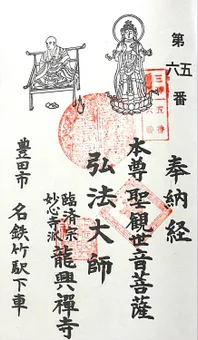 第六五番
奉納経
本尊聖観世音菩薩
弘法大師
臨済宗
妙心寺派
龍興禅寺
豊田市
名鉄竹駅下車